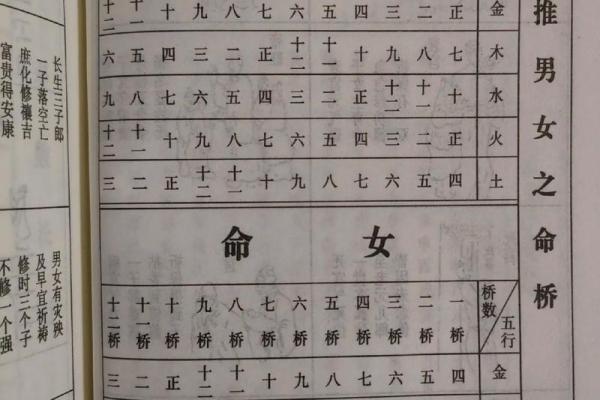 推男女之命桥
金 正 二 三 四 五 六 七 八 九 十 十一 十二
木 七 八 九 十 十一 十二 正 二 三 四 五 六
水 十 十一 十二 正 二 三 四 五 六 七 八 九
火 正 二 三 四 五 六 七 八 九 十 十一 十二
土 四 五 六 七 八 九 十 十一 十二 正 二 三
女命
桥数 五行 一桥 二桥 三桥 四桥 五桥 六桥 七桥 八桥 九桥 十桥 十一桥 十二桥
金 四 五 六 七 八 九 十 十一 十二 正 二 三
长生三子郎
一子落空亡
庶化修禳吉
富贵得安康
男女有灾殃
及早宜祈祷
修时三个子
不修一个强